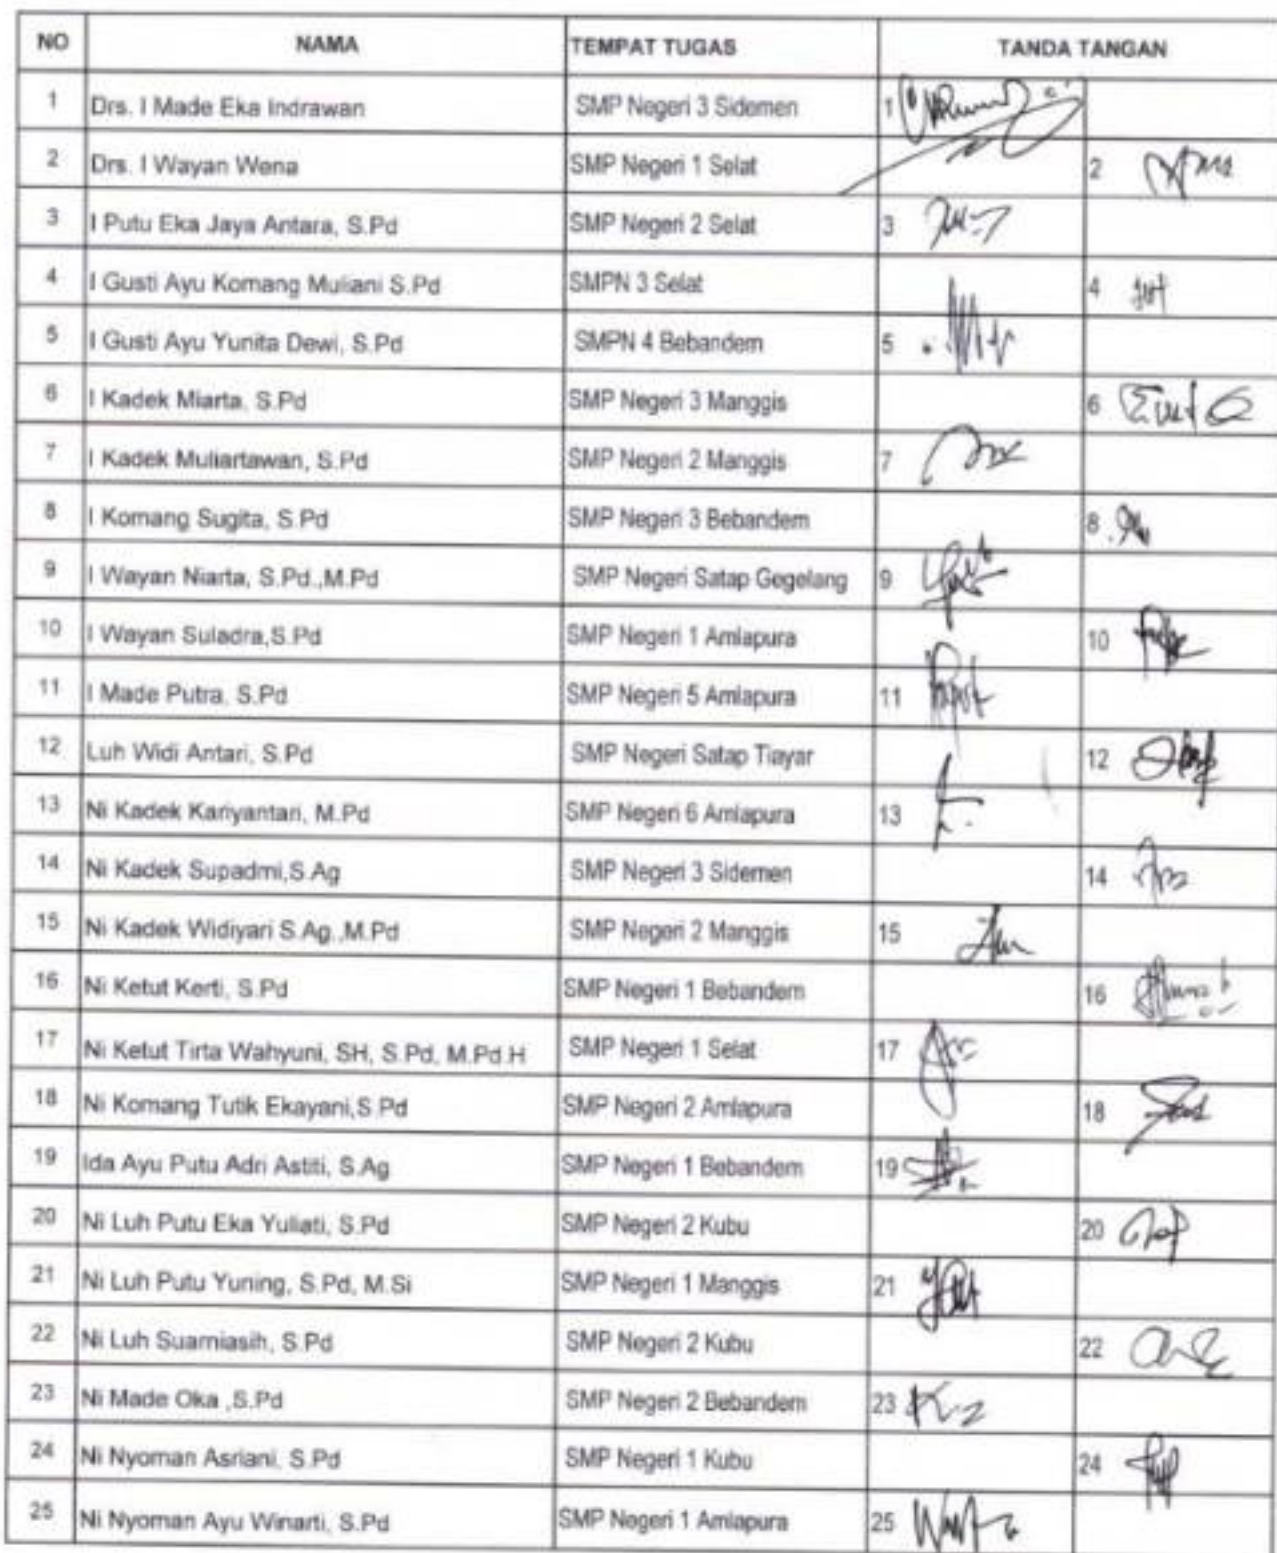 NO NAMA TEMPAT TUGAS TANDA TANGAN
1 Drs. I Made Eka Indrawan SMP Negeri 3 Sidemen 1
2 Drs. I Wayan Wena SMP Negeri 1 Selat 2
3 I Putu Eka Jaya Antara, S.Pd SMP Negeri 2 Selat 3
4 I Gusti Ayu Komang Muliani S.Pd SMPN 3 Selat 4
5 I Gusti Ayu Yunita Dewi, S.Pd SMPN 4 Bebandem 5
6 I Kadek Miarta, S.Pd SMP Negeri 3 Manggis 6
7 I Kadek Muliartawan, S.Pd SMP Negeri 2 Manggis 7
8 I Komang Sugita, S.Pd SMP Negeri 3 Bebandem 8
9 I Wayan Niarta, S.Pd.,M.Pd SMP Negeri Satap Gegelang 9
10 I Wayan Suladra,S.Pd SMP Negeri 1 Amlapura 10
11 I Made Putra, S.Pd SMP Negeri 5 Amlapura 11
12 Luh Widi Antari, S.Pd SMP Negeri Satap Tiayar 12
13 Ni Kadek Kariyantari, M.Pd SMP Negeri 6 Amlapura 13
14 Ni Kadek Supadmi,S.Ag SMP Negeri 3 Sidemen 14
15 Ni Kadek Widiyari S.Ag.,M.Pd SMP Negeri 2 Manggis 15
16 Ni Ketut Kerti, S.Pd SMP Negeri 1 Bebandem 16
17 Ni Ketut Tirta Wahyuni, SH, S.Pd, M.Pd.H SMP Negeri 1 Selat 17
18 Ni Komang Tutik Ekayani,S.Pd SMP Negeri 2 Amlapura 18
19 Ida Ayu Putu Adri Astiti, S.Ag SMP Negeri 1 Bebandem 19
20 Ni Luh Putu Eka Yuliati, S.Pd SMP Negeri 2 Kubu 20
21 Ni Luh Putu Yuning, S.Pd, M.Si SMP Negeri 1 Manggis 21
22 Ni Luh Suarniasih, S.Pd SMP Negeri 2 Kubu 22
23 Ni Made Oka ,S.Pd SMP Negeri 2 Bebandem 23
24 Ni Nyoman Asriani, S.Pd SMP Negeri 1 Kubu 24
25 Ni Nyoman Ayu Winarti, S.Pd SMP Negeri 1 Amlapura 25